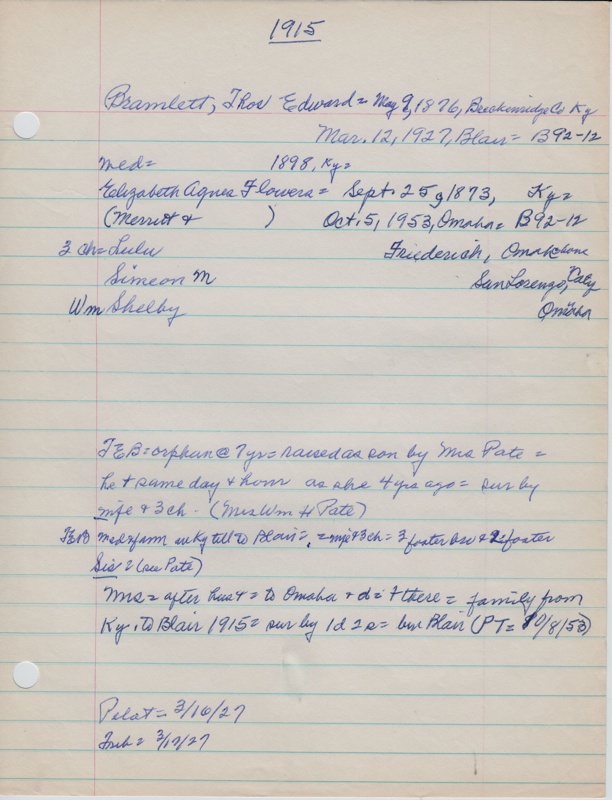 1915
Bramlett, Thos Edward = May 9, 1876, Breckinridge Co Ky
Mar. 12, 1927, Blair = B92-12
med = 1898, Ky =
Elizabeth Agnes Flowers = Sept. 25, 1873, Ky =
(Merritt & ) Oct. 5, 1953, Omaha = B92-12
3 ch = Lulu Friederich, Omaha
Simeon M San Lorenzo, Caly
Wm Shelby Omaha
TEB = orphan @ 7 yrs = raised as son by Mrs Pate =
he + same day & hour as she 4 yrs ago = sur by
wife & 3 ch - (Mrs Wm H Pate)
TEB med & farm in Ky till to Blair = , = wife & 3 ch = 3 foster bro & 2 foster
Sis = (see Pate)
Mrs = after hus + = to Omaha & d = + there = family from
Ky. to Blair 1915 = sur by 1 d 2 s = bur Blair (PT = 10/8/53)
Pilot = 3/16/27
Trib = 3/17/27